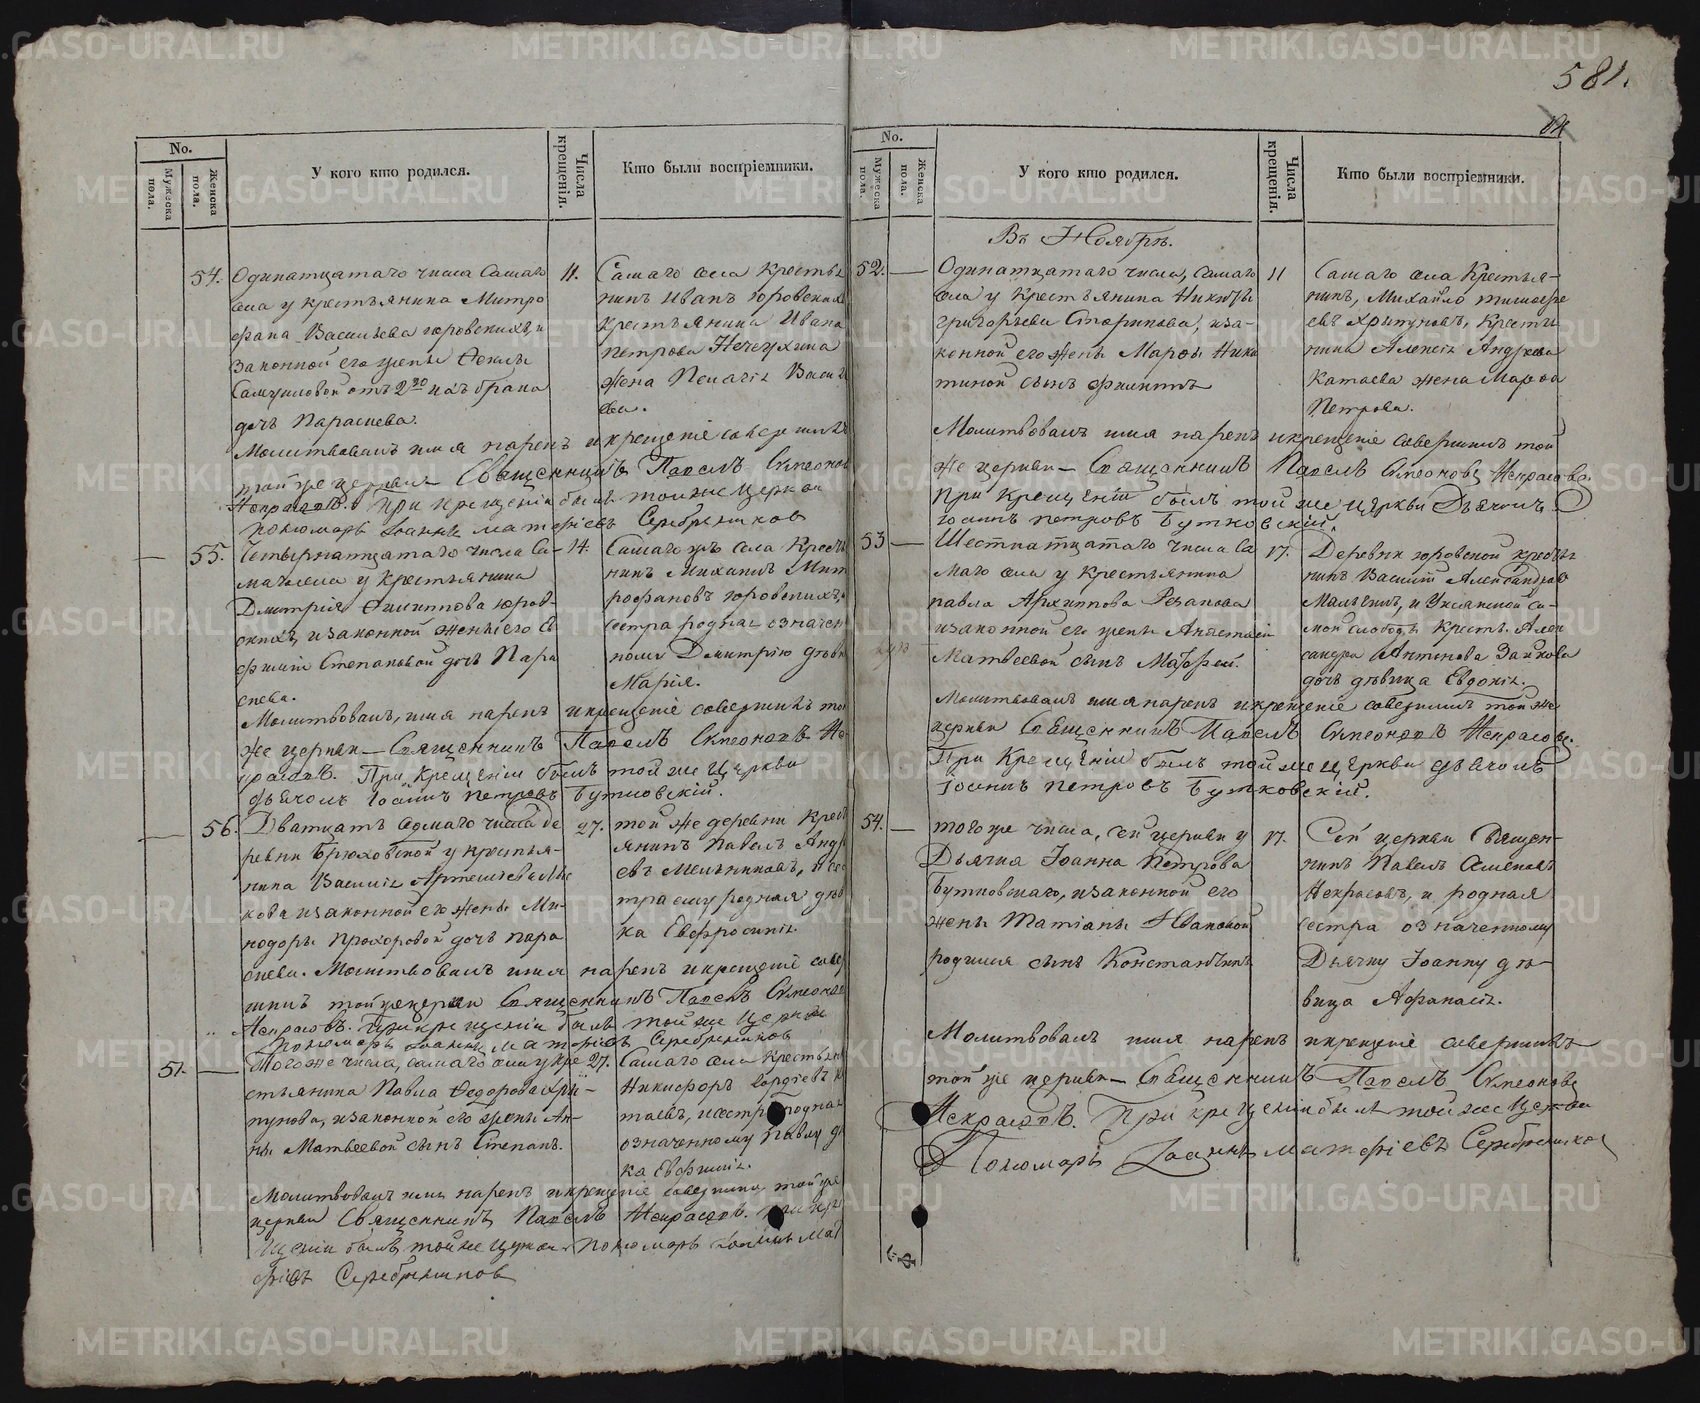 581.
No.
Мужеска пола.
Женска пола.
У кого кто родился.
Числа крещенія.
Кто были воспріемники.
54. Одинатцатаго числа Самаго
села у крестьянина Митро
фана Васильева юровскихъ, и
законной его жены Феклы
Самуиловой отъ 2го ихъ брака
дочь Параскева.
11.
Самаго села Крестья
нинъ Иванъ юровских
Крестьянина Ивана
Петрова
жена Пелагія Василь
ева.
Молитвовалъ имя нарекъ и крещеніе совершилъ
той же церкви Священникъ Павелъ Симеонов
Некрасовъ. При крещеніи былъ той же Церкви
пономарь Іоаннъ Матфіевъ Серебрениковъ
55. Четырнатцатаго числа Са-
маго села у крестьянина
Дмитрія Филиппова юров-
скихъ, и законной жены его Е
фиміи Степановой дочь Пара
скева.
14.
Самаго жъ села Крестья
нинъ Михаилъ Мит
рофановъ юровскихъ, и
сестра родная означен
ному Дмитрію девк
Марія.
Молитвовалъ, имя нарекъ и крещеніе совершилъ той
же церкви Священникъ Павелъ Симеоновъ Не
красовъ. При крещеніи былъ той же Церкви
Дьячокъ Іоаннъ Петровъ Бутковскій.
56. Дватцать седмаго числа де
ревни Брюховской у крестья-
нина Василія
кова и законной его жены Ми-
нодоры Прохоровой дочь Пара
скева. Молитвовалъ имя нарекъ и крещеніе совер
шилъ той же церкви Священникъ Павелъ Симеонов
Некрасовъ. При крещеніи былъ той же Церкви
пономарь Іоаннъ Матфіевъ Серебрениковъ
27.
той же деревни Крест
янинъ Павелъ Андре
евъ Мельниковъ, и сес
тра ему родная дев
ка Евфросинія.
51. Того же числа, самаго села у кре
стьянина Павла Федорова Хри-
пунова, и законной его жены Ан-
ны Матвеевой сынъ Степанъ.
27.
Самаго села Крестьян
Никифоръ Гордіевъ К
таевъ, и сестра родная
означенному Павлу де
ка Евфимія.
Молитвовалъ имя нарекъ и крещеніе совершилъ той же
церкви Священникъ Павелъ Некрасовъ. При кре
щеніи былъ той же Церкви Пономарь Іоаннъ Мат
фіевъ Серебрениковъ
No.
Мужеска пола.
Женска пола.
У кого кто родился.
Числа крещенія.
Кто были воспріемники.
Въ Ноябрѣ.
52. Одинатцатаго числа, Самаго
села у Крестьянина Никиты
Григорьева Старикова, и за-
конной его жены Марфы Ники
тиной сынъ Филиппъ
11
Самаго села Крестья-
нинъ, Михайло Тимофе
евъ Хрипуновъ, Крестья
нина Алексія Андреева
Катаева жена Марфа
Петрова.
Молитвовалъ имя нарекъ и крещеніе совершилъ той
же церкви Священникъ Павелъ Симеоновъ Некрасовъ.
При крещеніи былъ той же церкви Дьячокъ
Іоаннъ Петровъ Бутковскій.
53 Шестнатцатаго числа Са
маго села у Крестьянина
Павла Архиппова Резанова
и законной его жены Анастасіи
Матвеевой сынъ Матфей.
17.
Деревни юровской кресть
нинъ Василій Александров
Мальгинъ, и Уксянской Са-
мой слободы Крест. Алек
сандра Антонова Зайкова
дочь девица Евдокія.
Молитвовалъ имя нарекъ и крещеніе совершилъ той же
церкви Священникъ Павелъ Симеоновъ Некрасовъ.
При Крещеніи былъ той же церкви Дьячокъ
Іоаннъ Петровъ Бутковскій.
54. того же числа, сей церкви у
Дьячка Іоанна Петрова
Бутковскаго, и законной его
жены Татіаны Ивановой
родился сынъ Константинъ
17.
Сей церкви Священ-
никъ Павелъ Симеоновъ
Некрасовъ, и родная
сестра означенному
Дьячку Іоанну де-
вица Афанасія.
Молитвовалъ имя нарекъ и крещеніе совершилъ
той же церкви Священникъ Павелъ Симеоновъ
Некрасовъ. При крещеніи былъ той же Церкви
Пономарь Іоаннъ Матфіевъ Серебрениковъ
METRIKI.GASO-URAL.RU